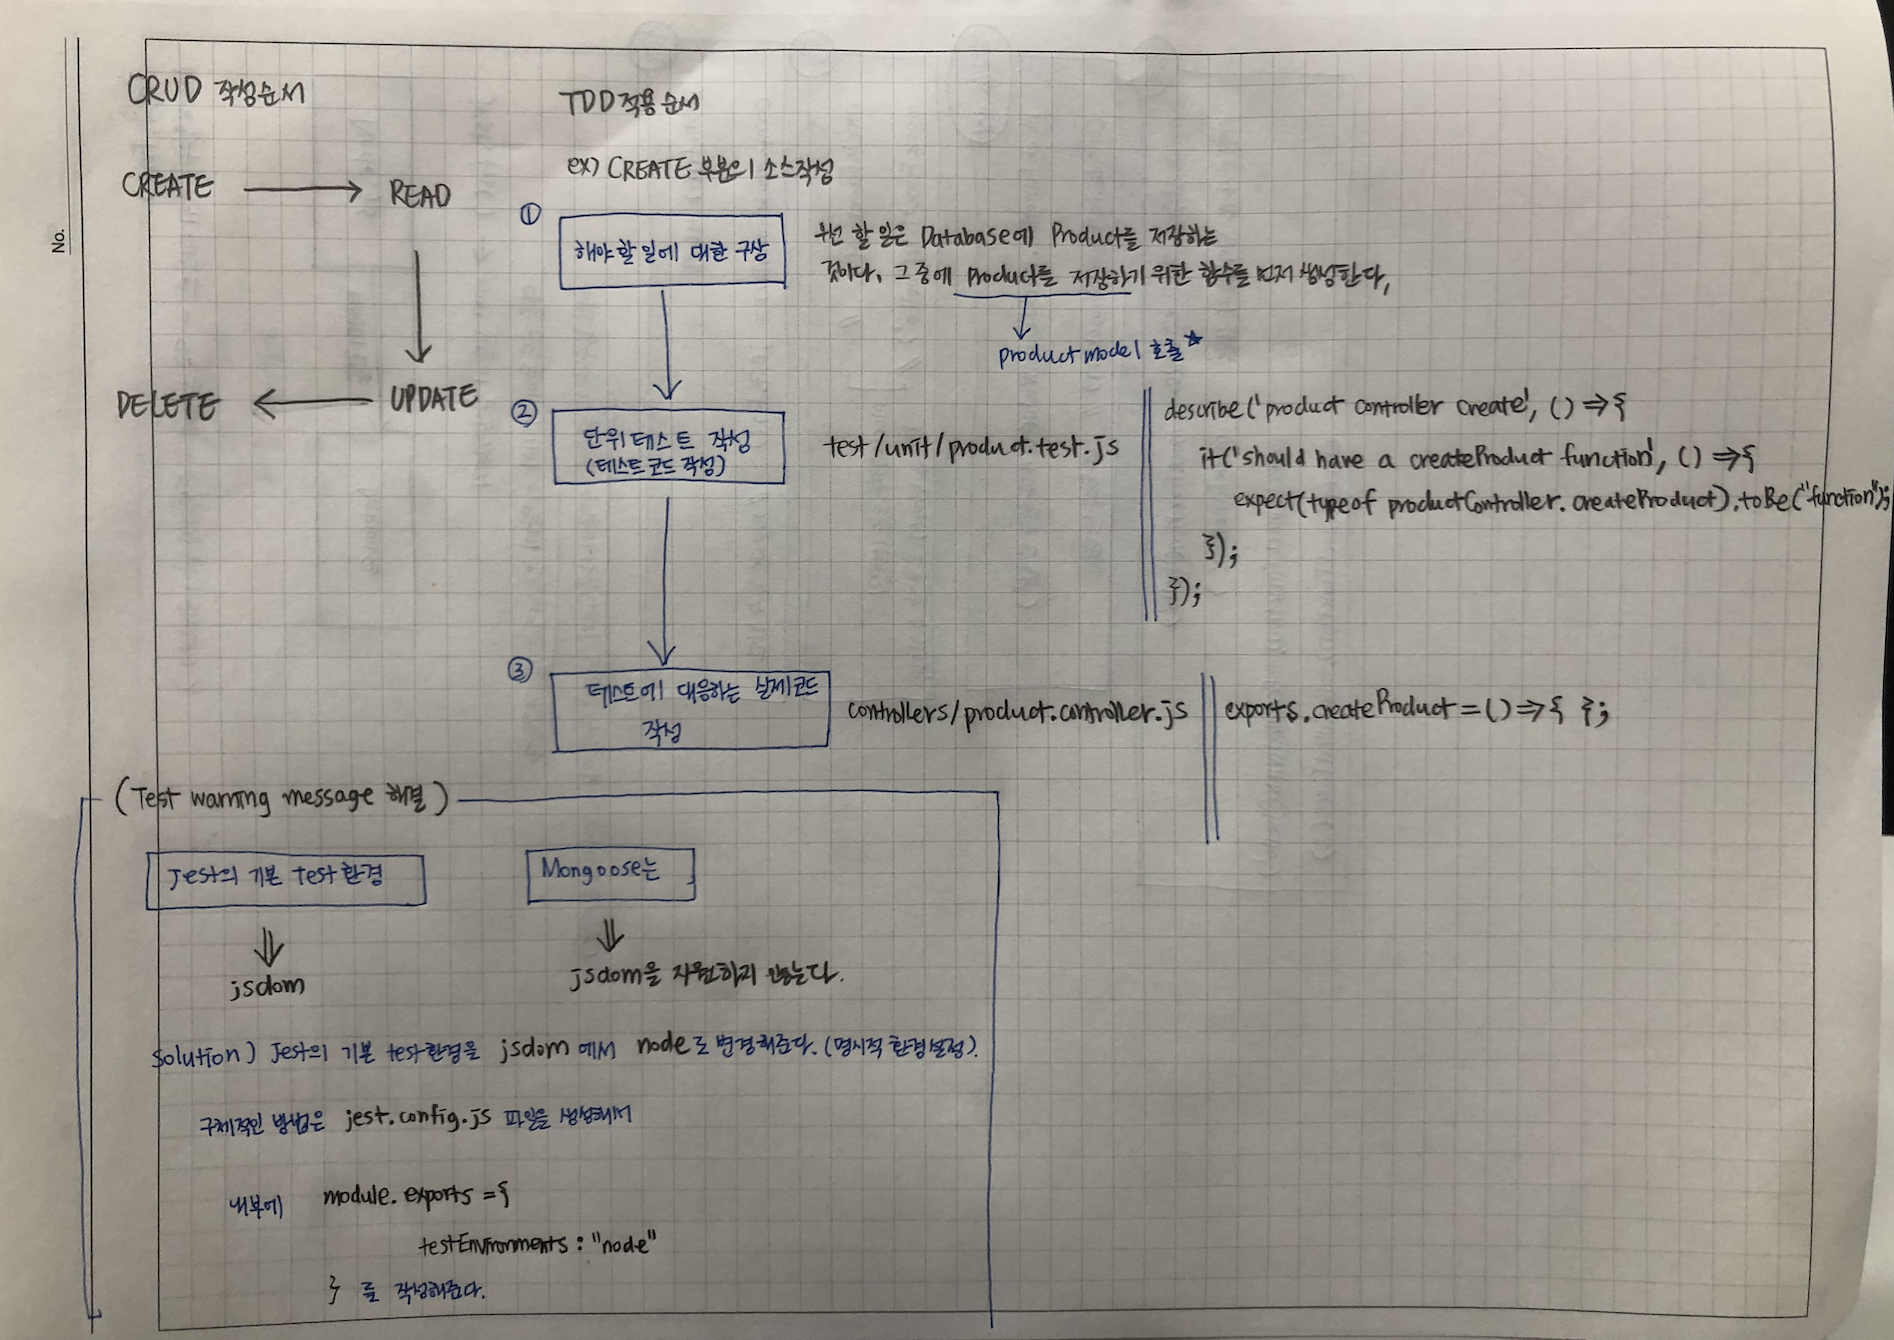 No.
CRUD 작성순서
CREATE → READ
DELETE ← UPDATE
TDD 적용 순서
ex) CREATE 부분의 소스작성
①
해야 할 일에 대한 구상
우선 할 일은 Database에 Product를 저장하는
것이다. 그 중에 Product를 저장하기 위한 함수를 먼저 생성한다,
product model 호출★
②
단위 테스트 작성
(테스트 코드 작성)
test/unit/product.test.js
describe('product controller create', () => {
it('should have a createProduct function', () => {
expect(typeof productController.createProduct).toBe("function");
});
});
③
테스트에 대응하는 실제코드
작성
controllers/product.controller.js
exports.createProduct = () => { };
(Test warning message 해결)
Jest의 기본 test 환경
⇓
jsdom
Mongoose는
⇓
jsdom을 지원하지 않는다.
Solution) Jest의 기본 test 환경을 jsdom에서 node로 변경해준다. (명시적 환경설정).
구체적인 방법은 jest.config.js 파일을 생성해서
내부에 module.exports = {
testEnvironments : "node"
} 를 작성해준다.